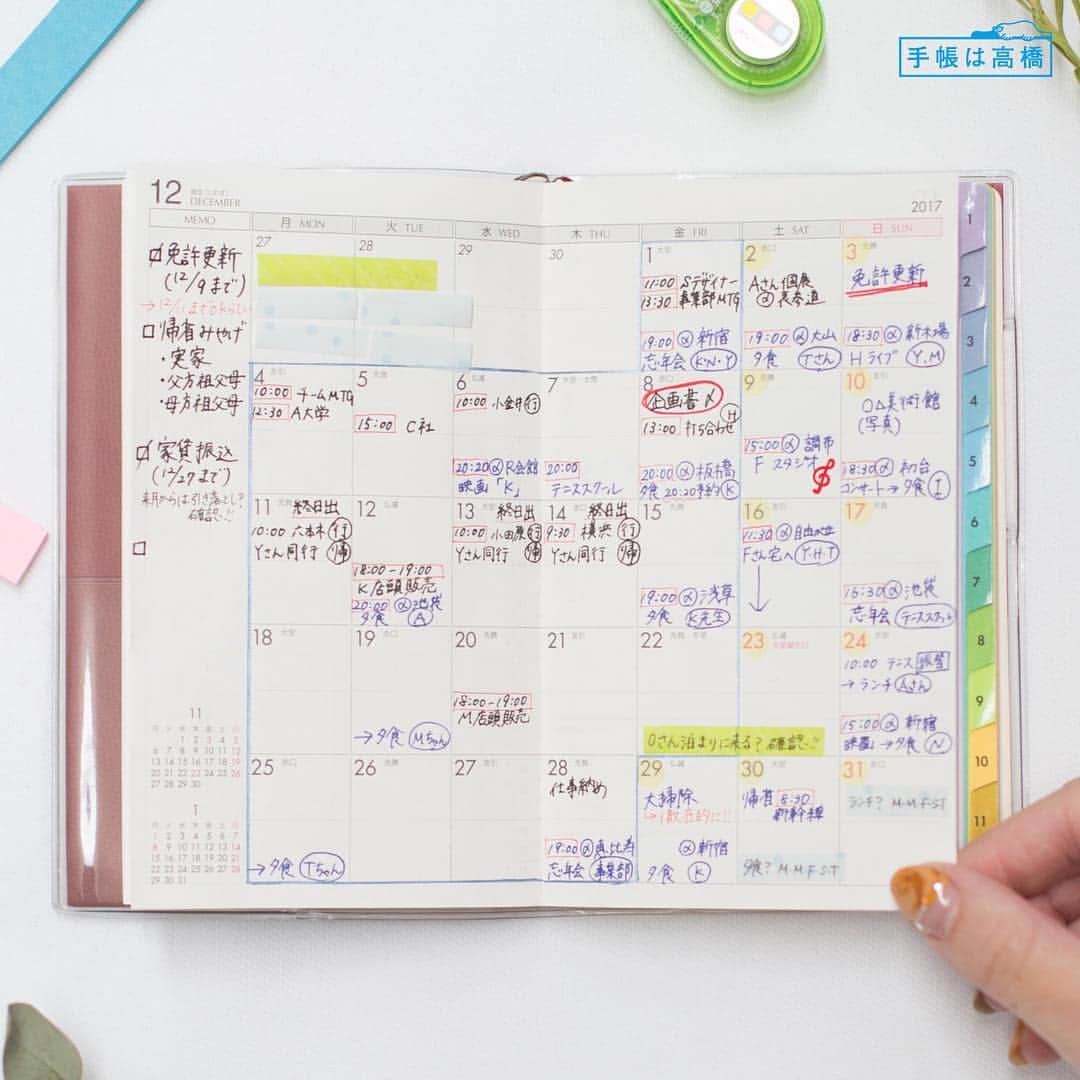 手帳は高橋
12
DECEMBER
2017
MEMO
月 MON
火 TUE
水 WED
木 THU
金 FRI
土 SAT
日 SUN
免許更新
(12/9まで)
帰省みやげ
・実家
・父方祖父母
・母方祖父母
家賃振込
(12/27まで)
来月からは引き落とし?
確認…!!
27
28
29
30
1 大安
11:00 Sデザイナー
13:30 事業部MTG
19:00 新宿
忘年会 K・N・Y
2 赤口
Aさん個展
@ 表参道
19:00 大山
夕食 Tさん
3 先勝
免許更新
18:30 新木場
Hライブ Y.M
4 友引
10:00 チームMTG
12:30 A大学
5 先負
15:00 C社
6 仏滅
10:00 小金井 行
20:20 R会館
映画「K」
7 大安・大雪
20:00
テニススクール
8 赤口
企画書〆
13:00 打ち合わせ H
20:00 板橋
夕食 20:20予約 K
9 先勝
15:00 調布
F スタジオ
10 友引
○△美術館
(写真)
18:30 初台
コンサート→夕食 I
11 先負 終日出
10:00 六本木 行
Yさん同行 帰
12
18:00-19:00
K店頭販売
20:00 池袋
夕食 A
13 終日出
10:00 小田原 行
Yさん同行 帰
14 終日出
9:30 横浜 行
Yさん同行 帰
15
19:00 浅草
夕食 K先生
16
11:30 自由が丘
Fさん宅へ Y.H.T
17
16:30 池袋
忘年会 テニススクール
18 大安
19 赤口
→夕食 Mちゃん
20 先勝
18:00-19:00
M店頭販売
21 友引
22 先負 冬至
23 仏滅
天皇誕生日
Oさん泊まりに来る? 確認…!!
24 大安
10:00 テニス 練習
→ランチ Aさん
15:00 新宿
映画→夕食 N
25 赤口
→夕食 Tちゃん
26 先勝
27 友引
28 先負
仕事納め
19:00 恵比寿
忘年会 事業部
29 仏滅
大掃除
→徹底的に!!
新宿
夕食 K
30 大安
帰省 8:30
新幹線
夕食? M・M・F・S・T
31 赤口
ランチ? M・M・F・S・T
11
月 火 水 木 金 土 日
1 2 3 4 5
6 7 8 9 10 11 12
13 14 15 16 17 18 19
20 21 22 23 24 25 26
27 28 29 30
1
1 2 3 4 5 6 7
8 9 10 11 12 13 14
15 16 17 18 19 20 21
22 23 24 25 26 27 28
29 30 31
1
2
3
4
5
6
7
8
9
10
11